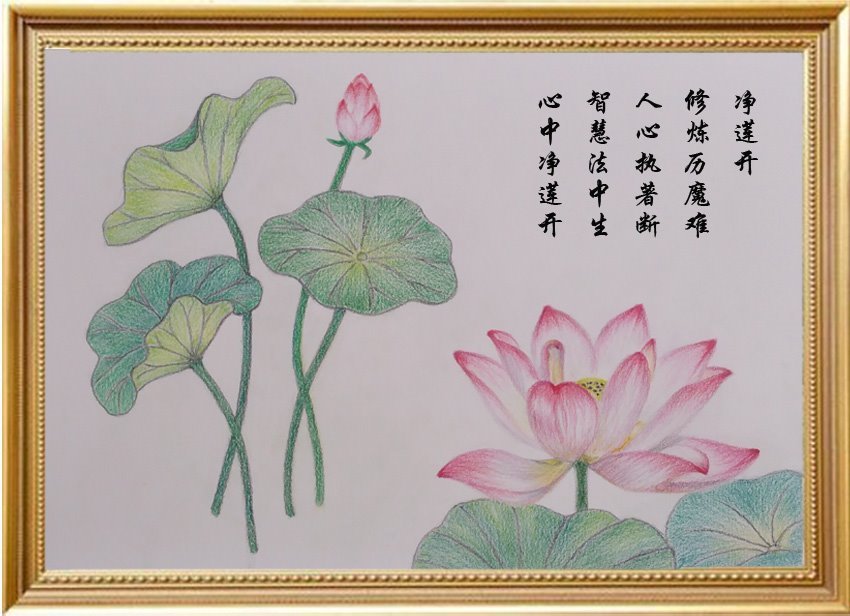 净莲开
修炼历魔难
人心执著断
智慧法中生
心中净莲开